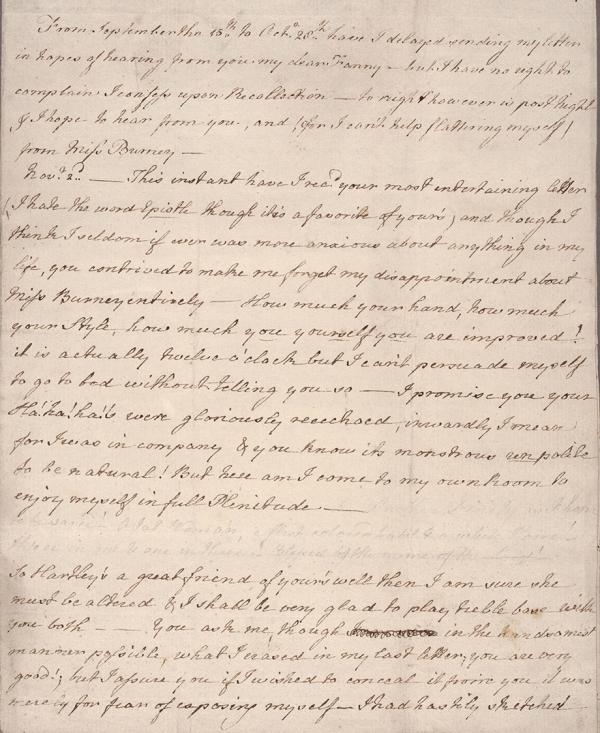 From September the 15th. to Octr. 28th. have I delayed sending my letter
in hopes of hearing from you my dear Fanny — but I have no right to
complain I confess upon Recollection — to night however is post night
& I hope to hear from you, and (for I can't help flattering myself)
from Miss Burney —
Novr. 2d. — This instant have I recd. your most entertaining letter
(I hate the word Epistle though it is a favorite of your's) and though I
think I seldom if ever was more anxious about anything in my
life, you contrived to make me forget my disappointment about
Miss Burney intirely — How much your hand, how much
your Style, how much you yourself you are improved!
it is actually twelve o'clock but I can't persuade myself
to go to bed without telling you so — I promise you your
Ha! ha! ha!'s were gloriously reechoed, inwardly I mean
for I was in company & you know its monstrous unpolite
to be natural! But here am I come to my own Room to
enjoy myself in full Plenitude —
So Hartley's a great friend of your's well then I am sure she
must be altered & I shall be very glad to play treble base with
you both — You ask me, though in the handsomest
manner possible, what I erased in my last letter; you are very
good!; but I assure you if I wished to conceal it from you it was
merely for fear of exposing myself — I had hastily sketched